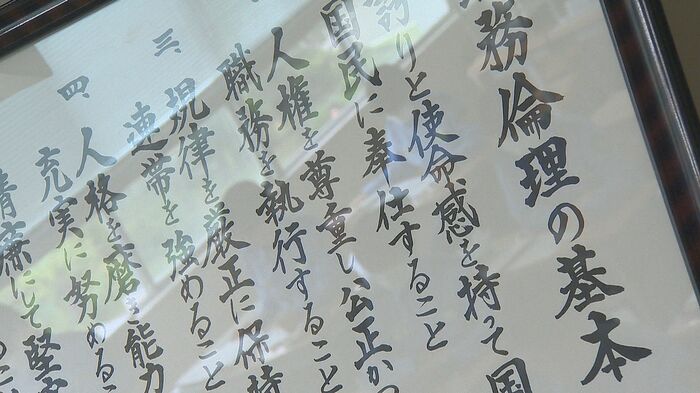 務倫理の基本
誇りと使命感を持って国
国民に奉仕すること
人権を尊重し公正かつ
職務を執行すること
三 規律を厳正に保持
連帯を強めること
四 人格を磨き能力
充実に努めるこ
清廉にして堅